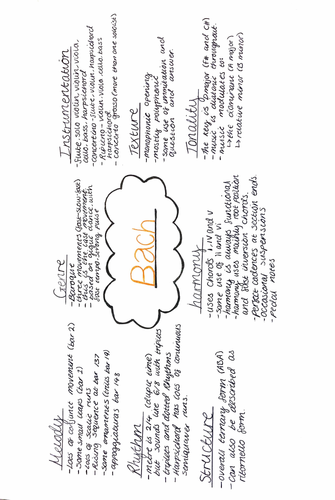 Melody
- Lots of conjunct movement (bar 2)
- some small leaps (bar 2)
- Lots of scalic runs
- Rising sequence at bar 137
- some ornaments (trills bar 19)
- appoggiaturas bar 148
Genre
- Baroque
- three movements (fast-slow-fast)
- this is the 3rd movement
- based on gigue dance, with
fast tempo + strong pulse
Instrumentation
- flute, solo violin, violin, viola,
cello, bass, harpsichord
- concertino - flute, violin, harpsichord
- Ripieno - violin, viola, cello, bass
harpsichord
- concerto grosso (more than one soloist)
Rhythm
- metre is 2/4, (duple time)
but sounds like 6/8 with triplets
- triplets and dotted rhythms
- Harpsichord has lots of continuous
semiquaver runs.
Bach
Texture
- monophonic opening
- mainly polyphonic
- some use of immitation and
question and answer.
Structure
- overall ternary form (ABA)
- can also be described as
ritornello form.
harmony
- uses chords I, IV and V
- some use of ii and vi
- harmony is always functional
- harmony uses mainly root position
and first inversion chords.
- perfect cadences at section ends
- occasional suspensions
- pedal notes
Tonality
- the key is D major (F# and C#)
- music is diatonic throughout.
- music modulates to:
↳ the dominant (A major)
↳ relative minor (B minor)